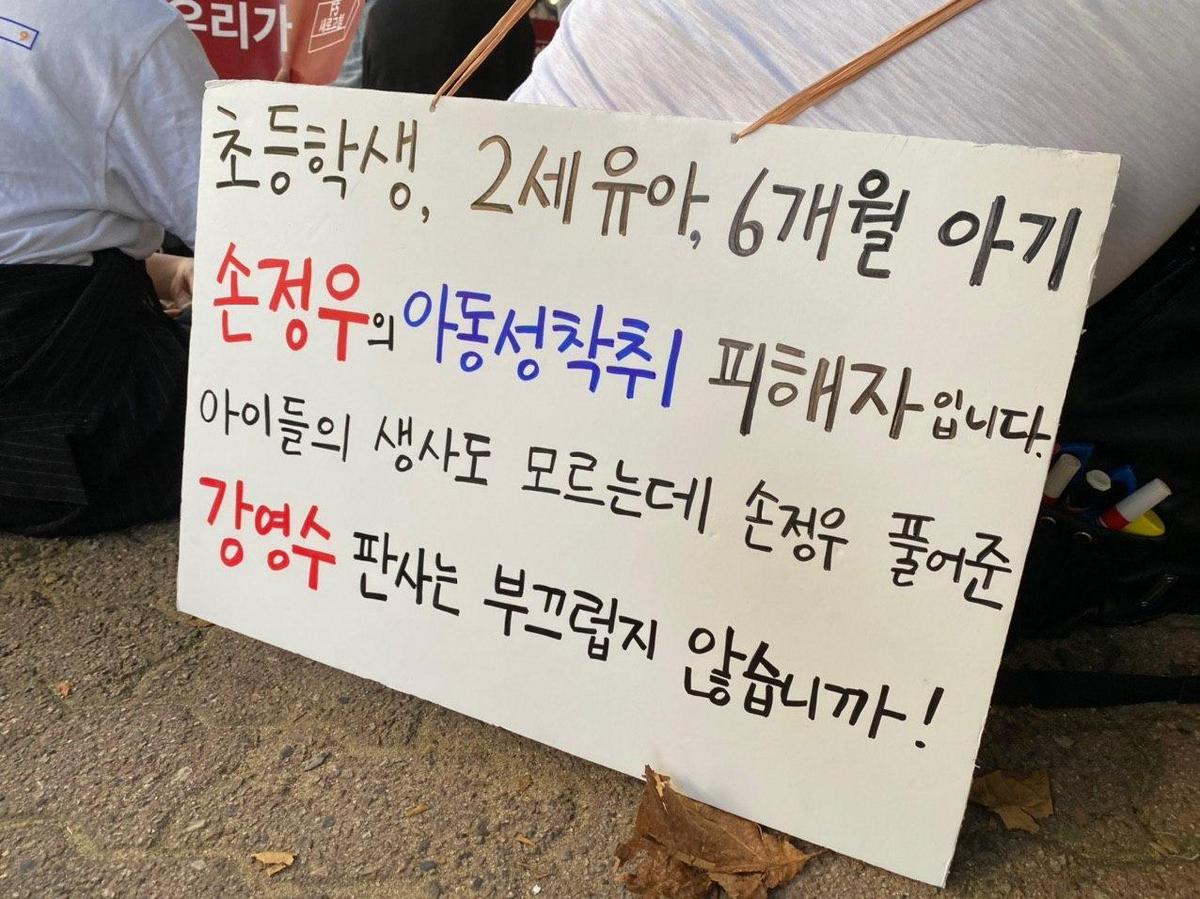 우리가
새로고침
초등학생, 2세 유아, 6개월 아기
손정우의 아동성착취 피해자입니다.
아이들의 생사도 모르는데 손정우 풀어준
강영수 판사는 부끄럽지 않습니까!